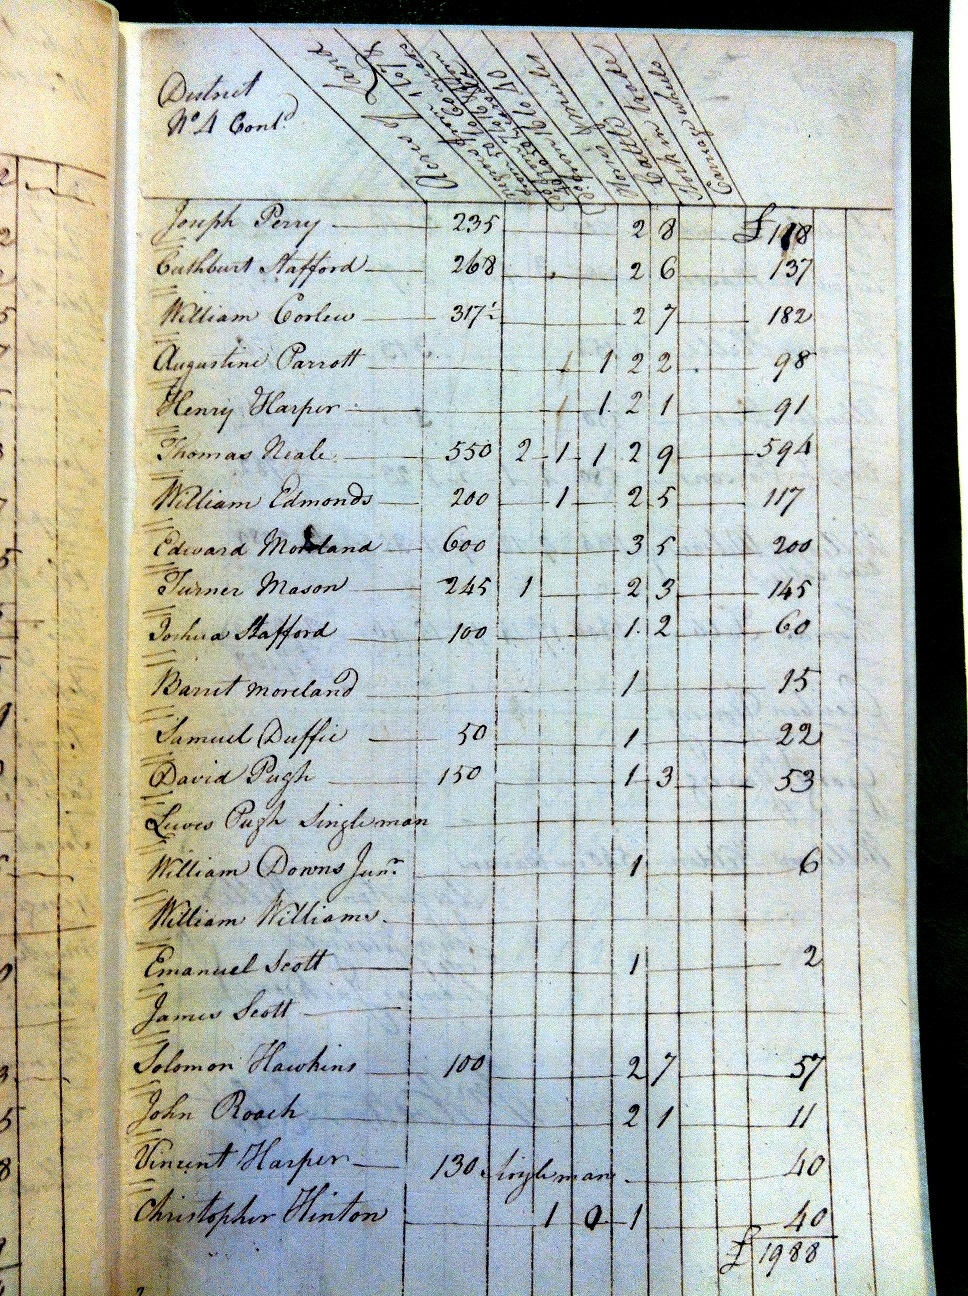 District
No. 4 Contd.
Acres of Land
Horses
Cattle
Joseph Perry 235 2 8 £ 118
Cuthburt Stafford 268 2 6 137
William Corlew 317 2 7 182
Augustine Parrott 1 1 2 2 98
Henry Harper 1 1 2 1 91
Thomas Neale 550 2 1 1 2 9 594
William Edmonds 200 1 2 5 117
Edward Moreland 600 3 5 200
Turner Mason 245 1 2 3 145
Joshua Stafford 100 1 2 60
Barret moreland 1 15
Samuel Duffie 50 1 22
David Pugh 150 1 3 53
Lewes Pugh Single man
William Downs Junr. 1 6
William Williams.
Emanuel Scott 1 2
James Scott
Solomon Hawkins 100 2 7 57
John Roach 2 1 11
Vincent Harper 130 Single man 40
Christopher Hinton 1 0 1 40
£ 1988